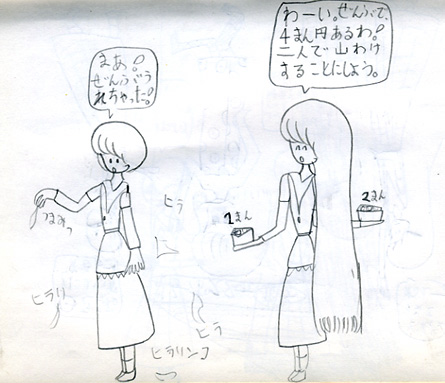 まあ!
ぜんぶう
れちゃった!
わーい。ぜんぶで、
4まん円あるわ!
二人で山わけ
することにしよう。
つまみっ
ヒラ
2まん
2まん
ヒラリ
ヒラ
ヒラリンコ